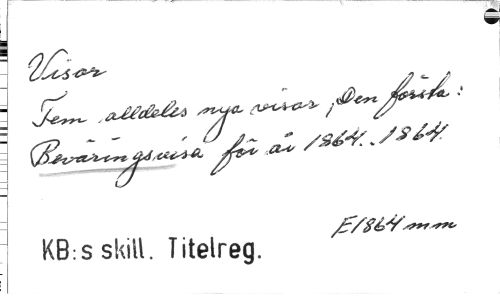 Visor
Fem alldeles nya visor, Den första:
Beväringsvisa för år 1864. 1864.
E1864 mm
KB:s skill. Titelreg.